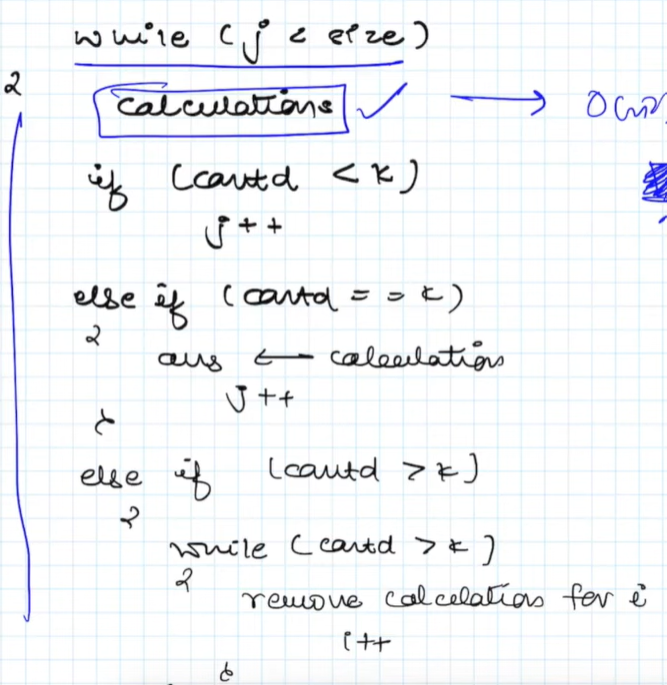 while (j < size)
{
calculations → O(
if (cond < k)
j++
else if (cond == k)
{
ans ← calculation
j++
}
else if (cond > k)
{
while (cond > k)
{
remove calculation for i
i++
}